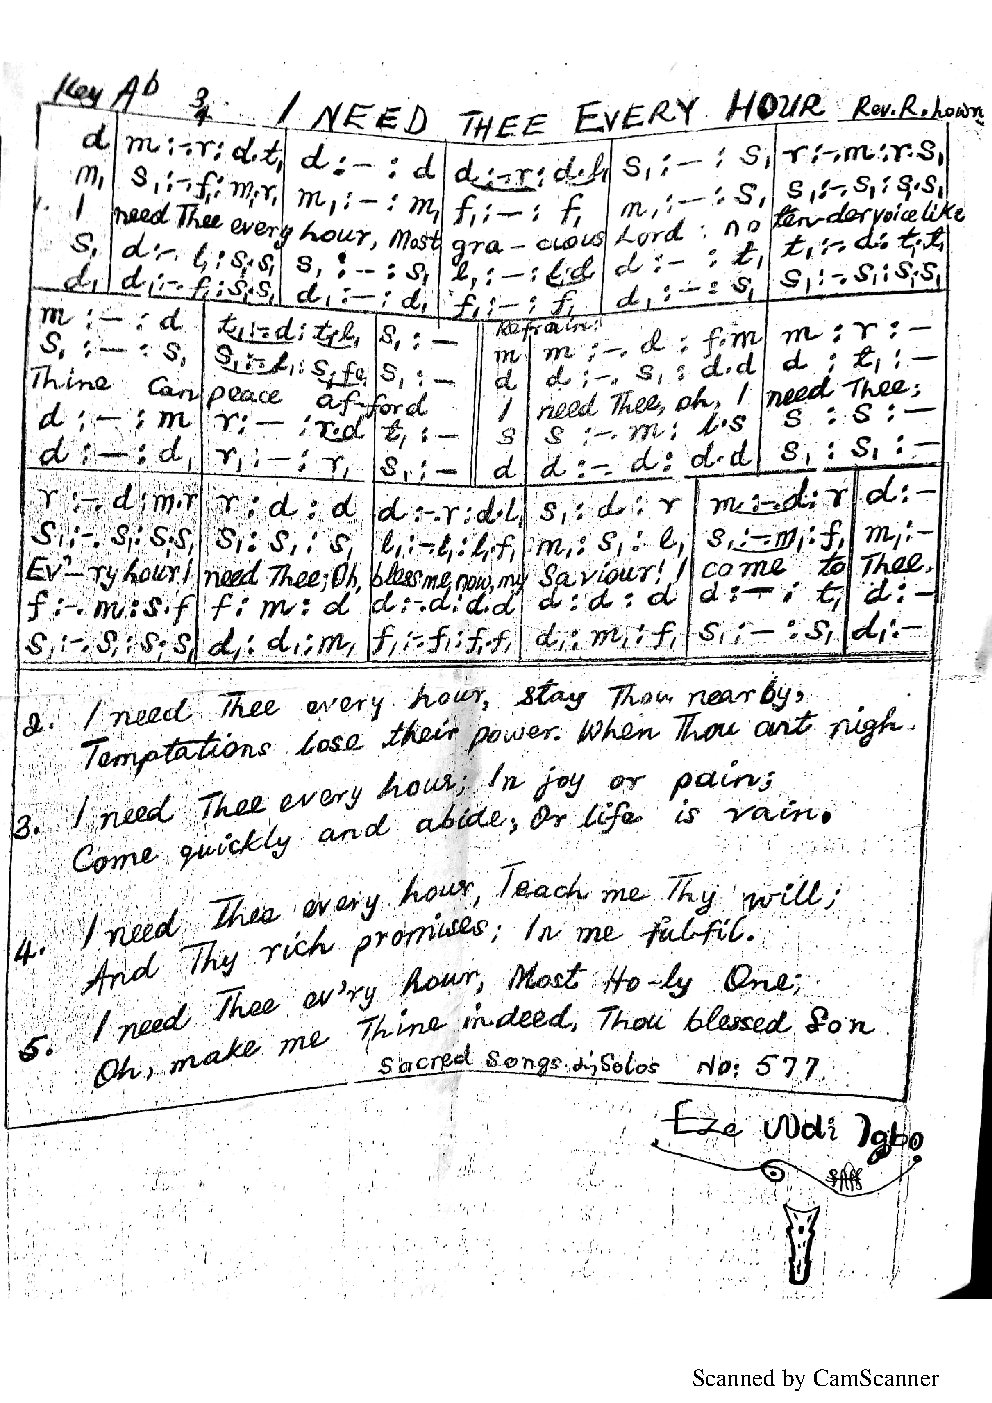 Key Ab 3/4 I NEED THEE EVERY HOUR Rev. R. Lowry
d | m :-.r: d.t, | d :- : d | d :-.r: d.l, | s, :- : s, | r :-.m: r.s,
m, | s, :-.f,: m,.r, | m, :- : m, | f, :- : f, | m, :- : s, | s, :-.s,: s,.s,
I | need Thee every | hour, Most | gra-cious | Lord: no | ten-der voice like
s, | d :-. l,: s,.s, | s, :- : s, | l, :- : l,.d | d :- : t, | t, :-. d: t,.t,
d, | d, :-. f,: s,.s, | d, :- : d, | f, :- : f, | d, :- : s, | s, :-. s,: s,.s,
m :- : d | t, :-.d: t,.l, | s, :- || Refrain:
m | m :-. d : f.m | m : r :-
s, :- : s, | s, :-.l,: s,.fe, | s, :- || d | d :-. s, : d.d | d : t, :-
Thine Can | peace af-ford || I | need Thee, oh, I | need Thee;
d :- : m | r :- : r.d | t, :- || s | s :-. m : l.s | s : s :-
d :- : d, | r, :- : r, | s, :- || d | d :-. d : d.d | s, : s, :-
r :-. d: m.r | r : d : d | d :-.r: d.l, | s, : d : r | m :-.d: r | d :-
s, :-. s,: s,.s, | s, : s, : s, | l, :-.l,: l,.f, | m, : s, : l, | s, :-.m,: f, | m, :-
Ev'-ry hour! I | need Thee; Oh, | bless me, now, my | Saviour! I | come to | Thee.
f :-. m: s.f | f : m : d | d :-.d: d.d | d : d : d | d :- : t, | d :-
s, :-. s,: s,.s, | d, : d, : m, | f, :-.f,: f,.f, | d, : m, : f, | s, :- : s, | d, :-
2. I need Thee every hour, Stay Thou near by,
Temptations lose their power. When Thou art nigh.
3. I need Thee every hour; In joy or pain;
Come quickly and abide, Or life is vain.
4. I need Thee every hour, Teach me Thy will;
And Thy rich promises; In me ful-fil.
5. I need Thee ev'ry hour, Most Ho-ly One;
Oh, make me Thine indeed, Thou blessed Son
Sacred Songs & Solos No: 577
Eze Ndi Igbo
Scanned by CamScanner